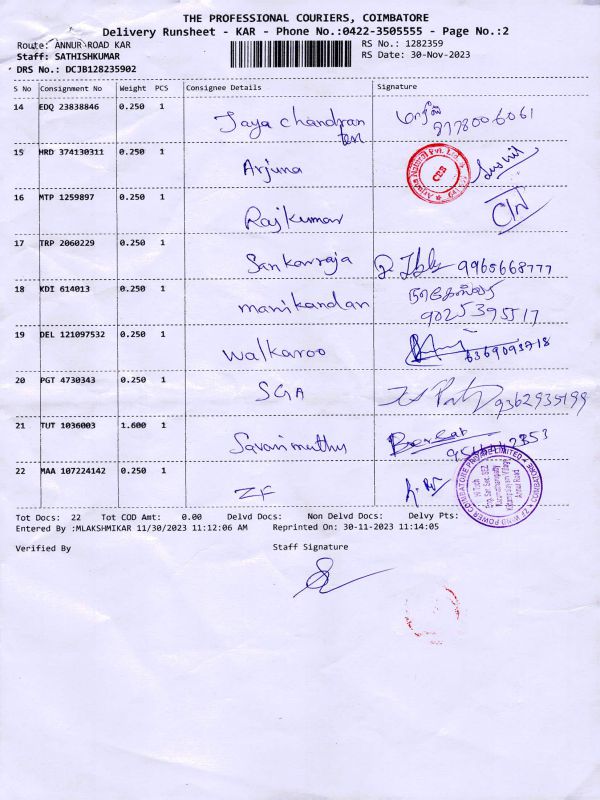 THE PROFESSIONAL COURIERS, COIMBATORE
Delivery Runsheet - KAR - Phone No.:0422-3505555 - Page No.:2
Route: ANNUR ROAD KAR
RS No.: 1282359
Staff: SATHISHKUMAR
RS Date: 30-Nov-2023
DRS No.: DCJB128235902
S No Consignment No Weight PCS Consignee Details Signature
14 EDQ 23838846 0.250 1 Jaya chandran
15 HRD 374130311 0.250 1 Arjuna
CBE
16 MTP 1259897 0.250 1 Rajkumar
17 TRP 2060229 0.250 1 Sankarraja 9965668777
18 KDI 614013 0.250 1 manikandan
9025395517
19 DEL 121097532 0.250 1 walkaroo
20 PGT 4730343 0.250 1 SGA 9362935199
21 TUT 1036003 1.600 1 Savarimuthu
22 MAA 107224142 0.250 1 ZF
Tot Docs: 22 Tot COD Amt: 0.00 Delvd Docs: Non Delvd Docs: Delvy Pts:
Entered By :MLAKSHMIKAR 11/30/2023 11:12:06 AM Reprinted On: 30-11-2023 11:14:05
Verified By Staff Signature